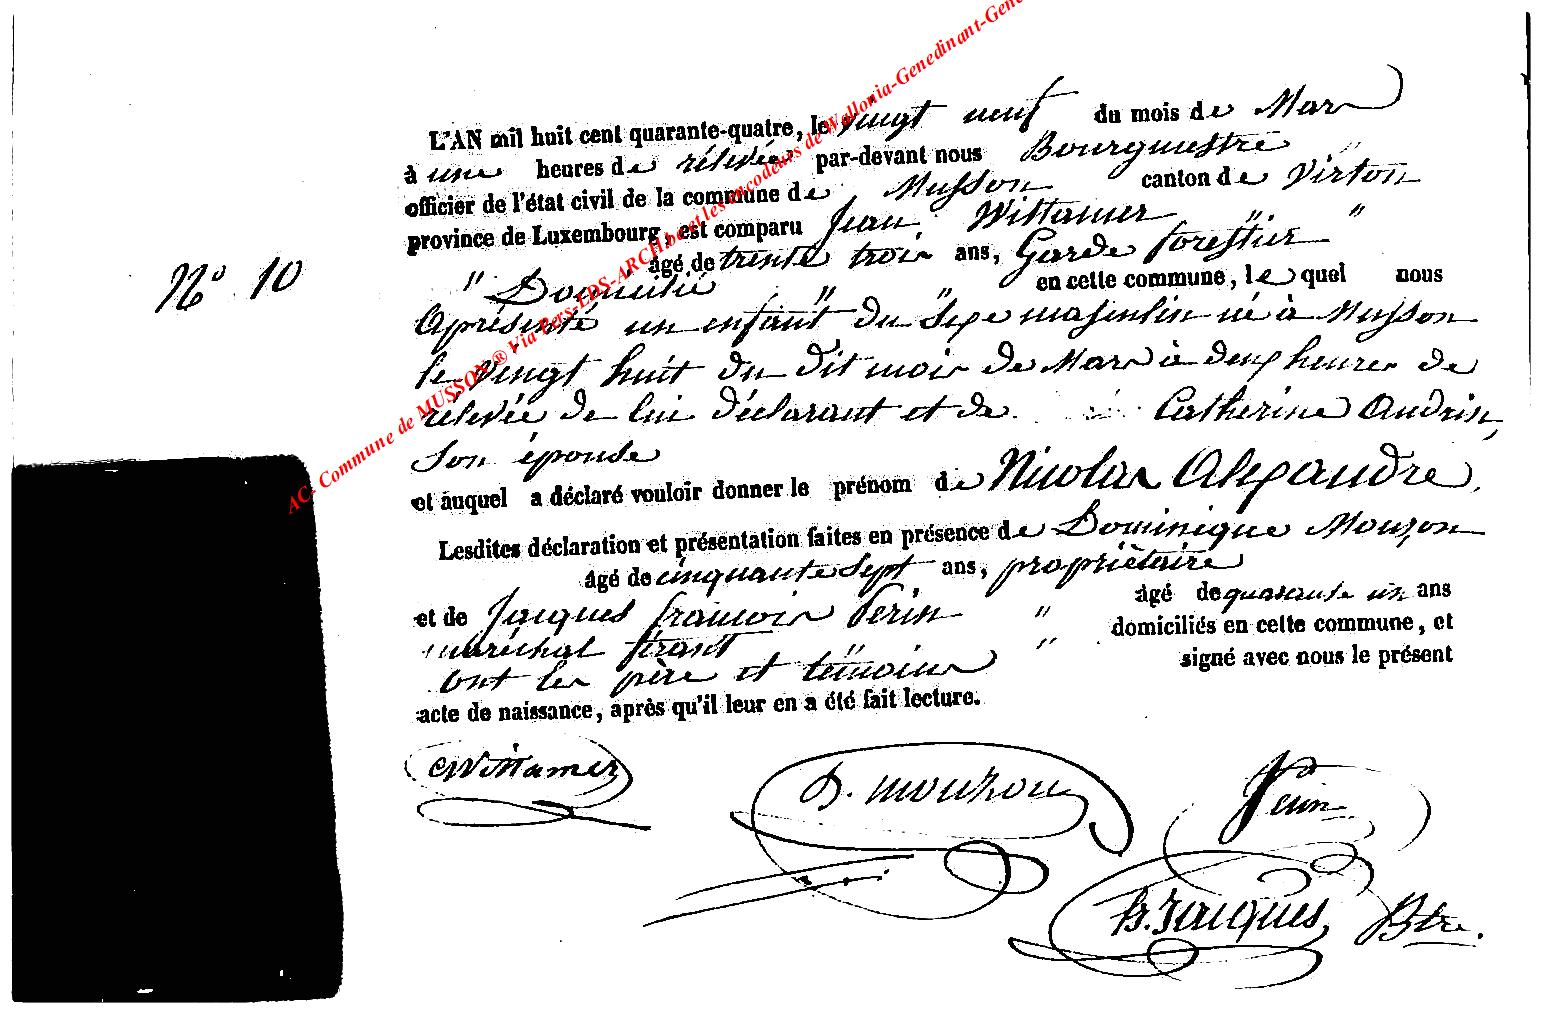 AC. Commune de MUSSON® Via Pers-EDS-ARCHbe et les encodeurs de Wallonia-Genedinant-Gene
N° 10
L'AN mil huit cent quarante-quatre, le vingt neuf du mois de Mars
à une heures de rélevée par-devant nous Bourgmestre "
officier de l'état civil de la commune de Musson canton de Virton
province de Luxembourg, est comparu Jean Wittamer " "
" âgé de trente trois ans, Garde forestier
Domicilié " " en cette commune, le quel nous
a présenté un enfant du sexe masculin né à Musson
le vingt huit du dit mois de Mars à deux heures de
rélevée de lui déclarant et de Catherine Audrin,
son épouse
et auquel a déclaré vouloir donner le prénom de Nicolas Alexandre.
Lesdites déclaration et présentation faites en présence de Dominique Mouzon
âgé de cinquante sept ans, propriètaire
et de Jacques françois Perin " âgé de quarante un ans
maréchal ferant " " domiciliés en cette commune, et
ont les père et témoins signé avec nous le présent
acte de naissance, après qu'il leur en a été fait lecture.
Wittamer
D. mouzon
Perin
Jacques Btre.